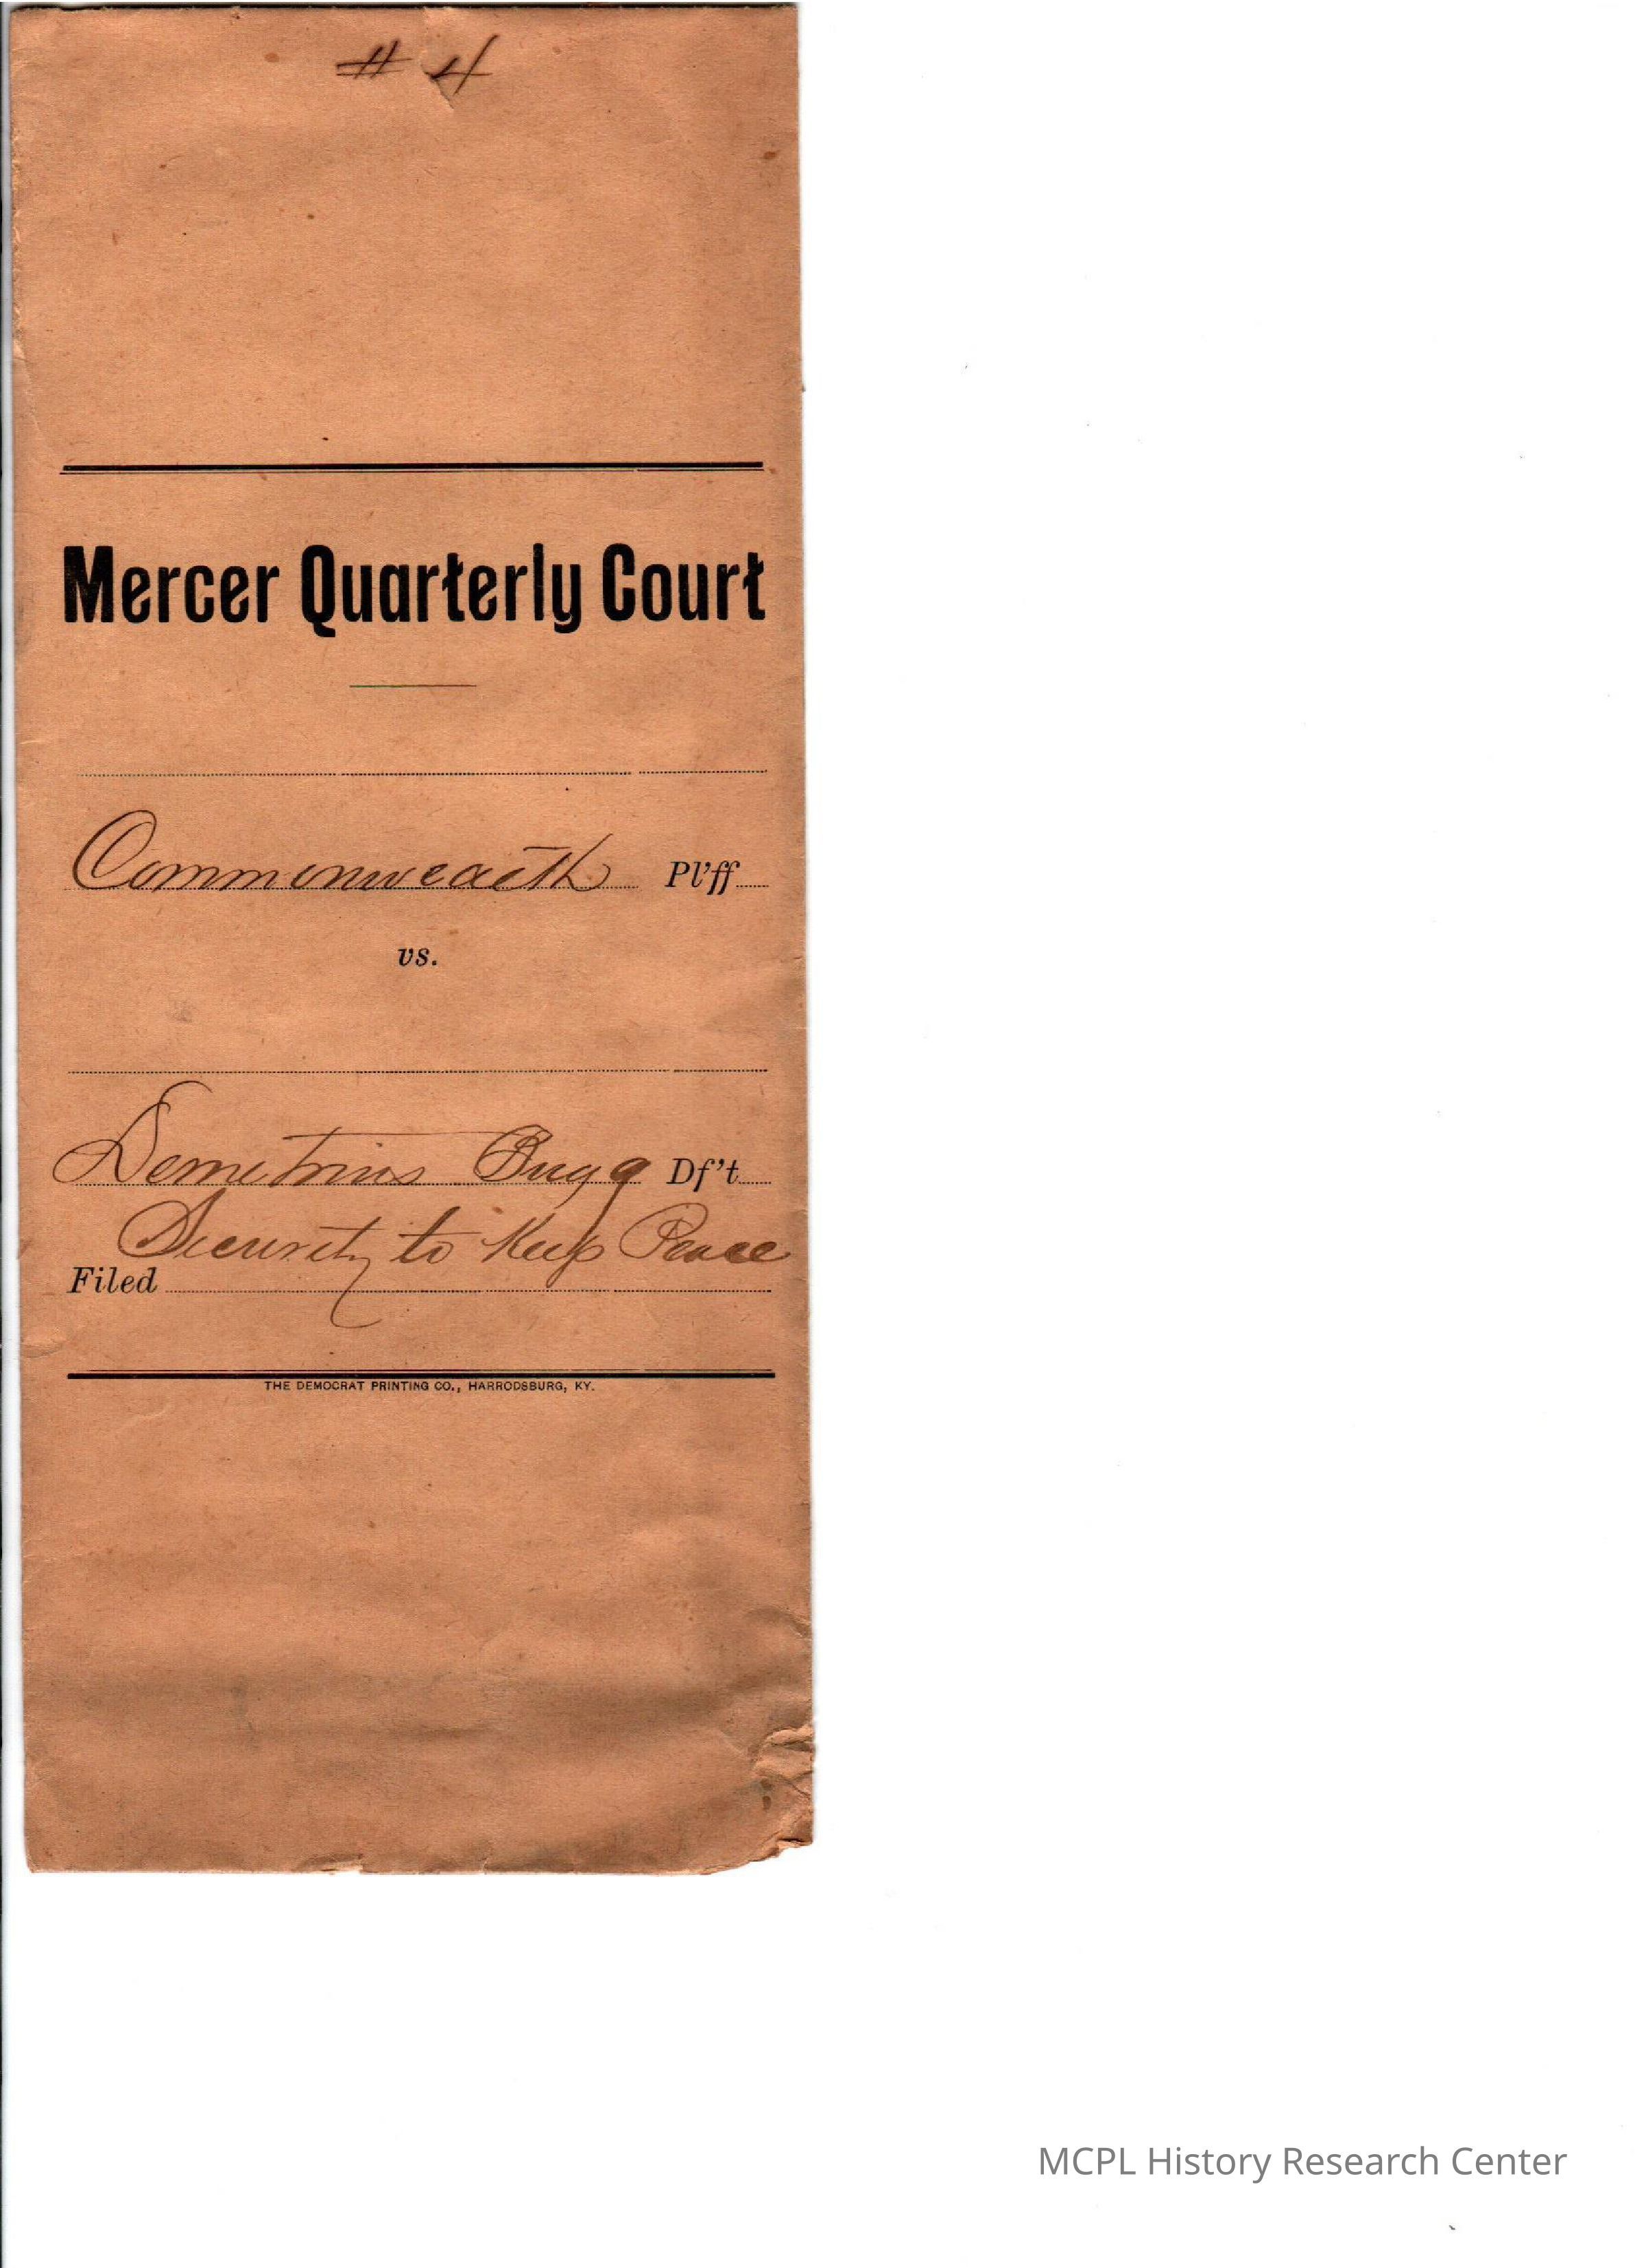 # 4
Mercer Quarterly Court
Commonwealth Pl'ff
vs.
Demetrius Bugg Df't
Security to Keep Peace
Filed
THE DEMOCRAT PRINTING CO., HARRODSBURG, KY.
MCPL History Research Center